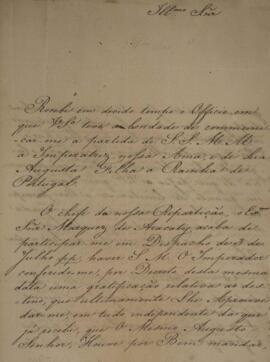 Illmo Snr
Recebi em devido tempo o Officio, em
que VSa teve a bondade de communi
car me a partida de S.S.M.M.
a Imperatriz nossa Ama, e de Sua
Augusta Filha a Rainha de
Portugal.
O chefe da nossa Repartição, o Exmo
Snr Marquez de Aracaty, acaba de
participar me em Despacho de
Julho pp. haver S. M. O Imperador
conferido me, por Decreto desta mesma
data uma gratificação relativa ao des
tino, que ultimamente Lhe Aprouve
dar me, em tudo independente da que
já percebo, que O Mesmo Augusto
Senhor, Houve por Bem mandar